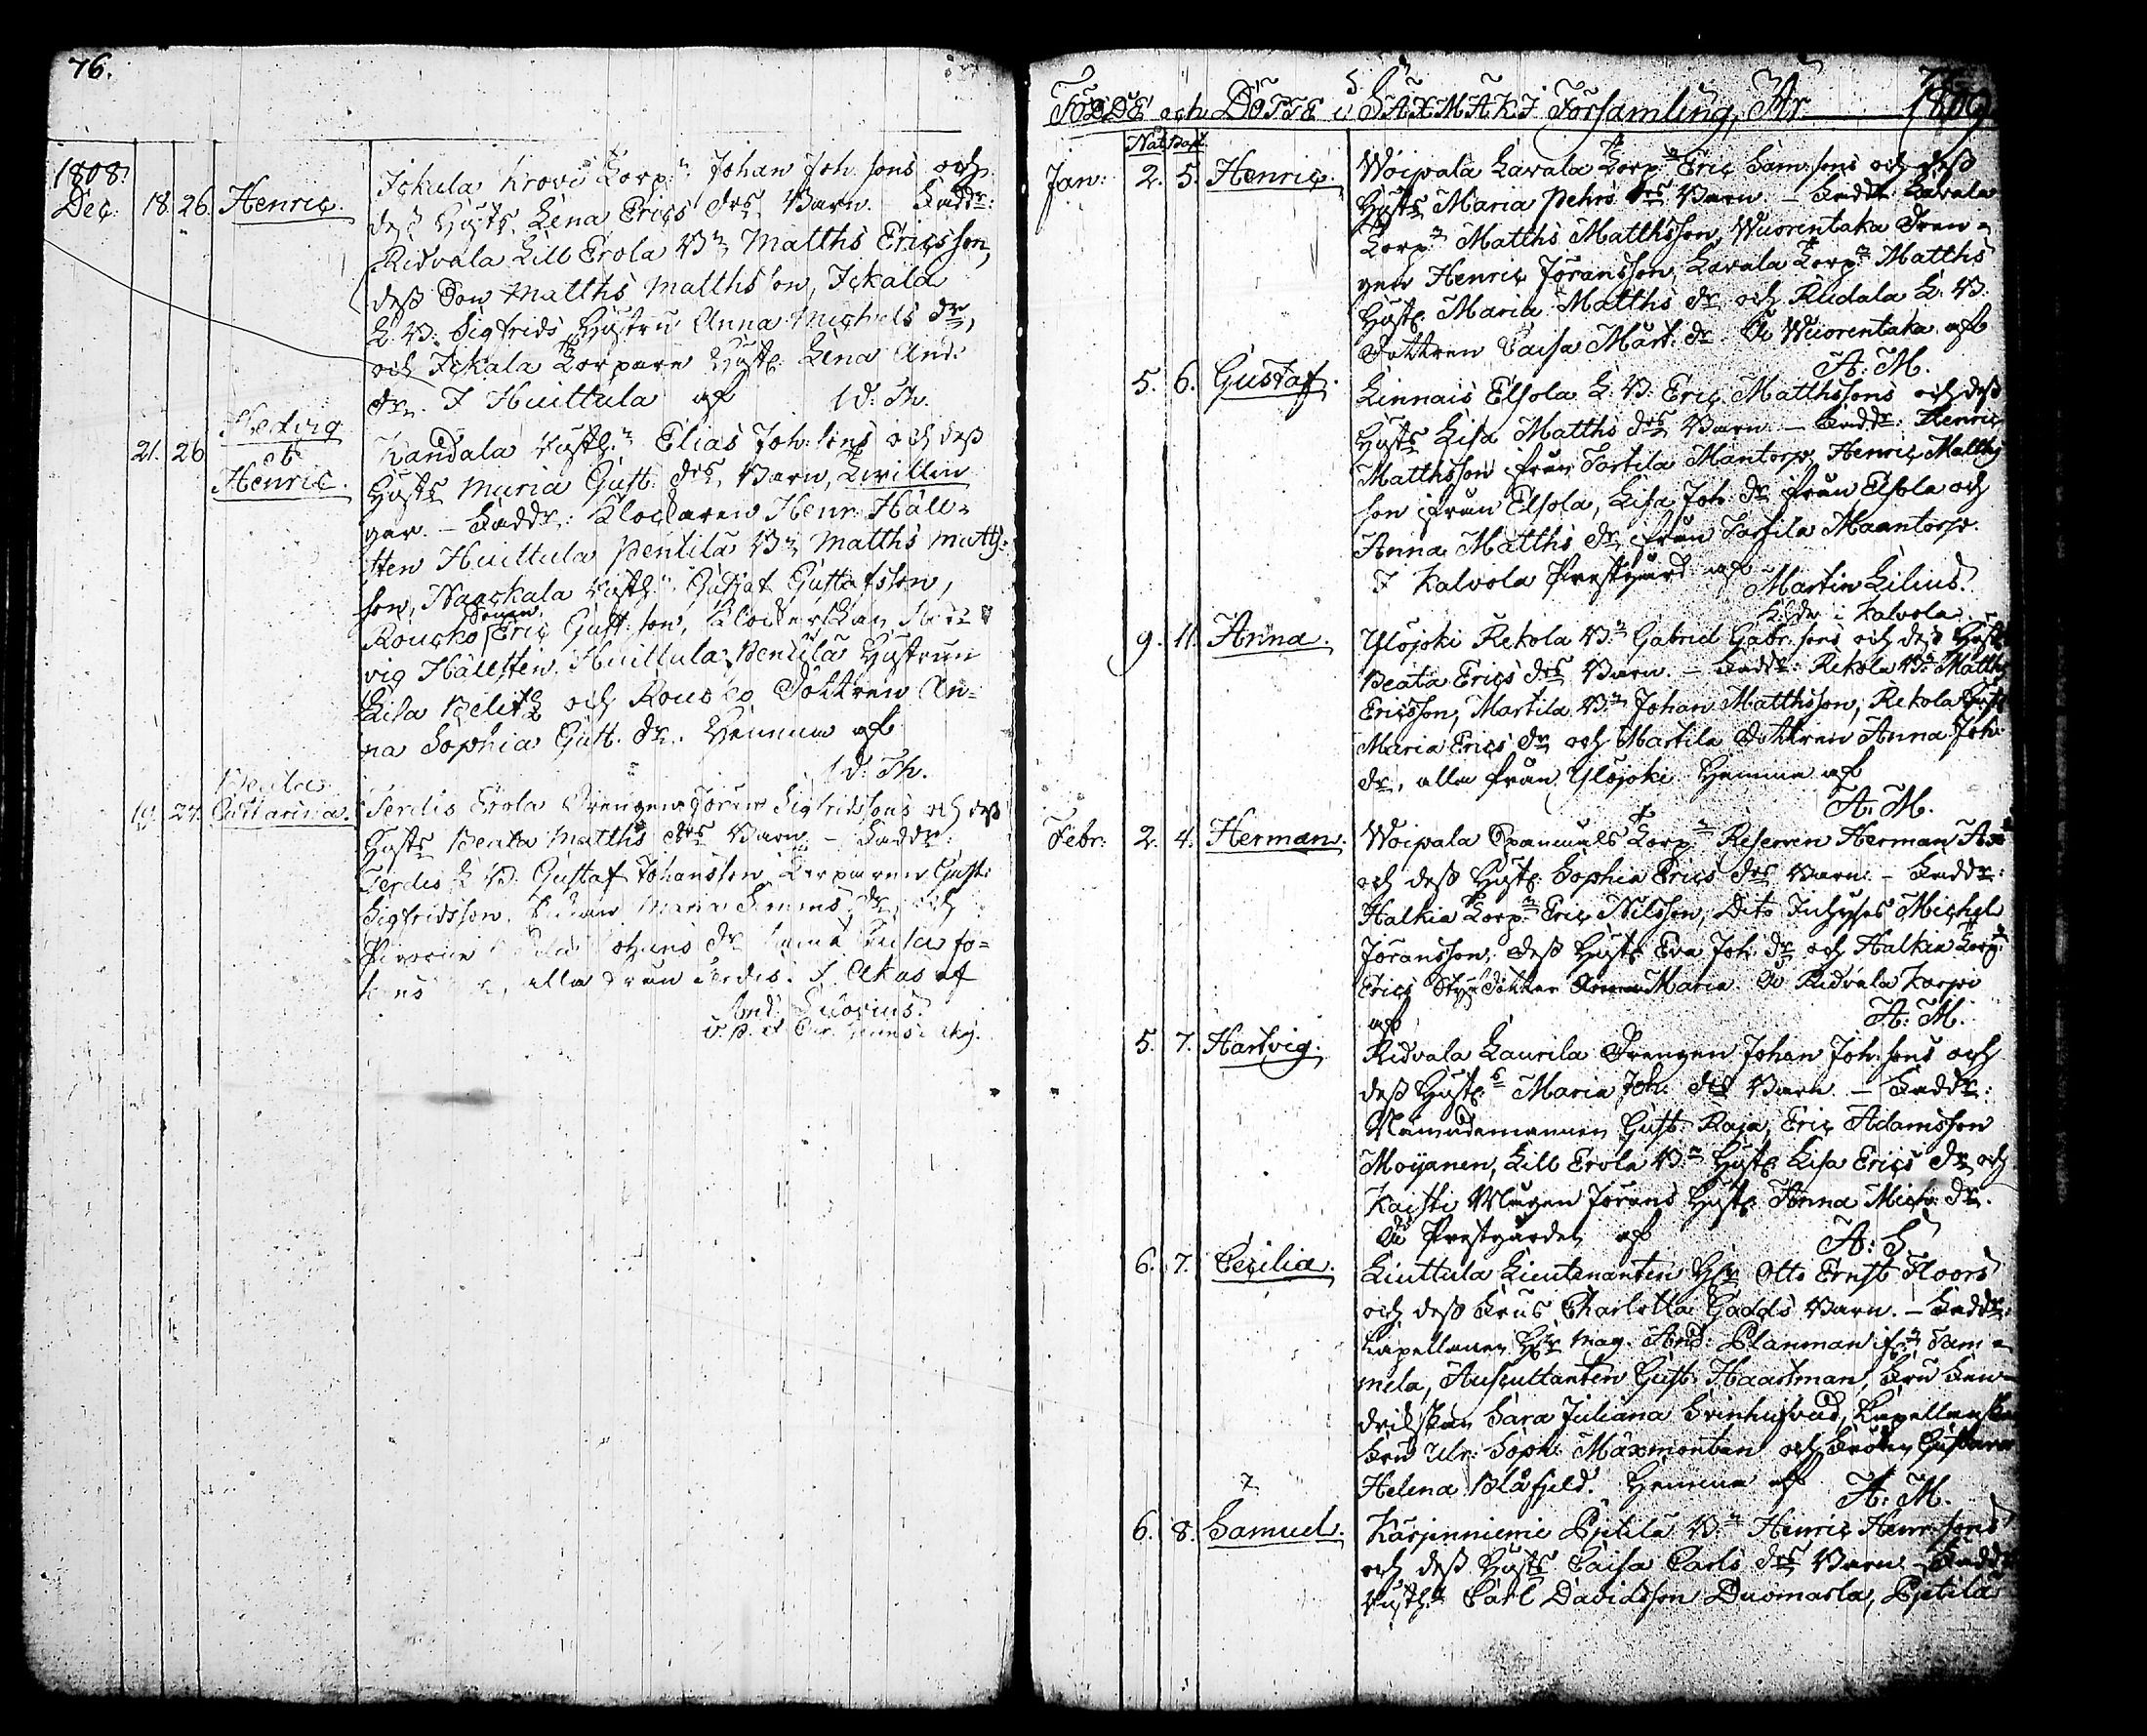 76.
1808.
Dec: 18. 26. Henric.
Jckala Krovi Torp:n Johan Joh:sons och
dess Hust: Lena Erics drs Barn. Faddr:
Ridvala Lill Erola B:n Matths Ericsson,
dess Son Matths Matthsson, Jckala
L. B: Sigfrids Hustru Anna Michels dr,
och Jckala Torpare Hust: Lena And:
dr. I Huittula af 1d: Th.
21. 26 Hedvig et Henric.
Kandala Elias Joh:sons och dess
Hust: Maria Gust: drs Barn, Tvillin
gar. - Faddr: Klockaren Henr: Häll-
sten Huittula Pentilä B:n Matths Matth:
son, Naackala Gustaf Gustafsson,
Roucko Sonen Eric Gust:son, Klockerskan Hed
vig Hällsten, Huittula Pentilä Hustrun
Lisa Belitz och Roucko Dottren An-
na Sophia Gust. dr. Hemma af
1d: Th.
19. 27. Beata Catharina.
Terdis Erola Drengen Jöran Sigfridssons och dess
Hust: Beata Matths drs Barn - Faddr:
Terdis L. B. Gustaf Johansson, Torparen Gust:
Sigfridsson, Pigan Maria Simons dr, och
Johans dr Jo-
hans alla från Terdis. I Akas af
And:
v. p.
FÖDDE och DÖPTE i SÄXMÄKI Församling, År 1809.
Nat. Bapt.
Jan: 2. 5. Henric.
Woipala Lavala Torp:n Eric Sam:sons och dess
Hust: Maria Pehrs drs Barn. - Faddr: Lavala
Torp:n Matths Matthsson, Wuorentaka Dren-
gen Henric Jöransson, Lavala Torp:n Matths
Hust: Maria Matths dr och Rudala L. B:
Dottren Caisa Mårt: dr. Å Wuorentaka af
A: M.
5. 6. Gustaf.
Linnais Elsola L. B: Eric Matthssons och dess
Hust: Lisa Matths drs Barn - Faddr: Henric
Matthsson från Tartila Mantorp, Henric Matths
son från Elsola, Lisa Joh: dr från Elsola och
Anna Matths dr från Tartila Maantorp.
I Kalvola Prestgård af Martin Lilius.
i Kalvola.
9. 11. Anna.
Ylöjoki Rekola B:n Gabriel Gabr:sons och dess Hust:
Beata Erics drs Barn. - Faddr: Rekola B:n Matths
Ericsson, Martila B:n Johan Matthsson, Rekola Hust:
Maria Erics dr och Martila Dottren Anna Joh:
dr, alla från Ylöjoki Hemma af
A: M.
Febr: 2. 4. Herman.
Woipala Torp:n Reserven Herman
och dess Hust: Sophia Erics drs Barn. - Faddr:
Halkia Torp:n Eric Nilsson, Dito Inhyses Michel
Jöransson, dess Hust: Eva Joh: dr och Halkia Torp:
Erics Styfdotter Maria. Å Ridvala Korpi
af A: M.
5. 7. Hartvig.
Ridvala Laurila Drengen Johan Joh:sons och
dess Hust: Maria Joh: drs Barn - Faddr:
Nämndemannen Gust: Raja, Eric Adamsson
Moijanen, Lill Erola B:n Hust: Lisa Erics dr och
Kaisti Mågen Jörans Hust: Anna Mich: dr.
Å Prestgården af A: S
6. 7. Cecilia.
Liuttula Lieutenanten H:r Otto Ernst Floors
och dess Frus Charlotta Gadds Barn. - Faddr:
Capellanen H:r Mag. And: Planman if:n Tam-
mela, Auscultanten Gust: Haartman, Fru Fen-
drikskan Sara Juliana Svinhufvud, Capellanskan
Fru Ulr: Soph: Maxmontan och Fröken Gustava
Helena Blåfjeld. Hemma af A: M.
6. 8. Samuel.
Karjenniemi Pjetilä B:n Henric Henr:sons
och dess Hust: Caisa Carls drs Barn - Faddr:
Carl Davidsson Duomarla, Pjetilä